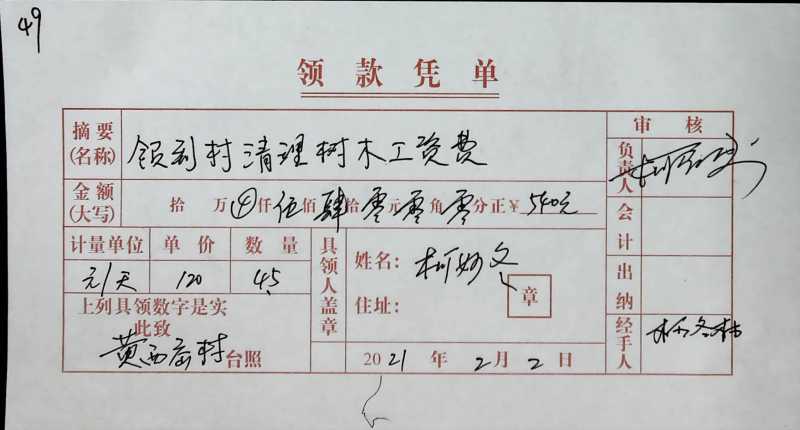 49
领款凭单
摘要(名称) 领到村清理树木工资费
审核
金额(大写) 拾万④仟伍佰肆拾零元零角零分正¥540元
负责人
会计
计量单位 单价 数量
元/天 120 4.5
具领人盖章
姓名：柯妙文
住址：
章
出纳
上列具领数字是实
此致
黄西畲村台照
2021年2月2日
经手人